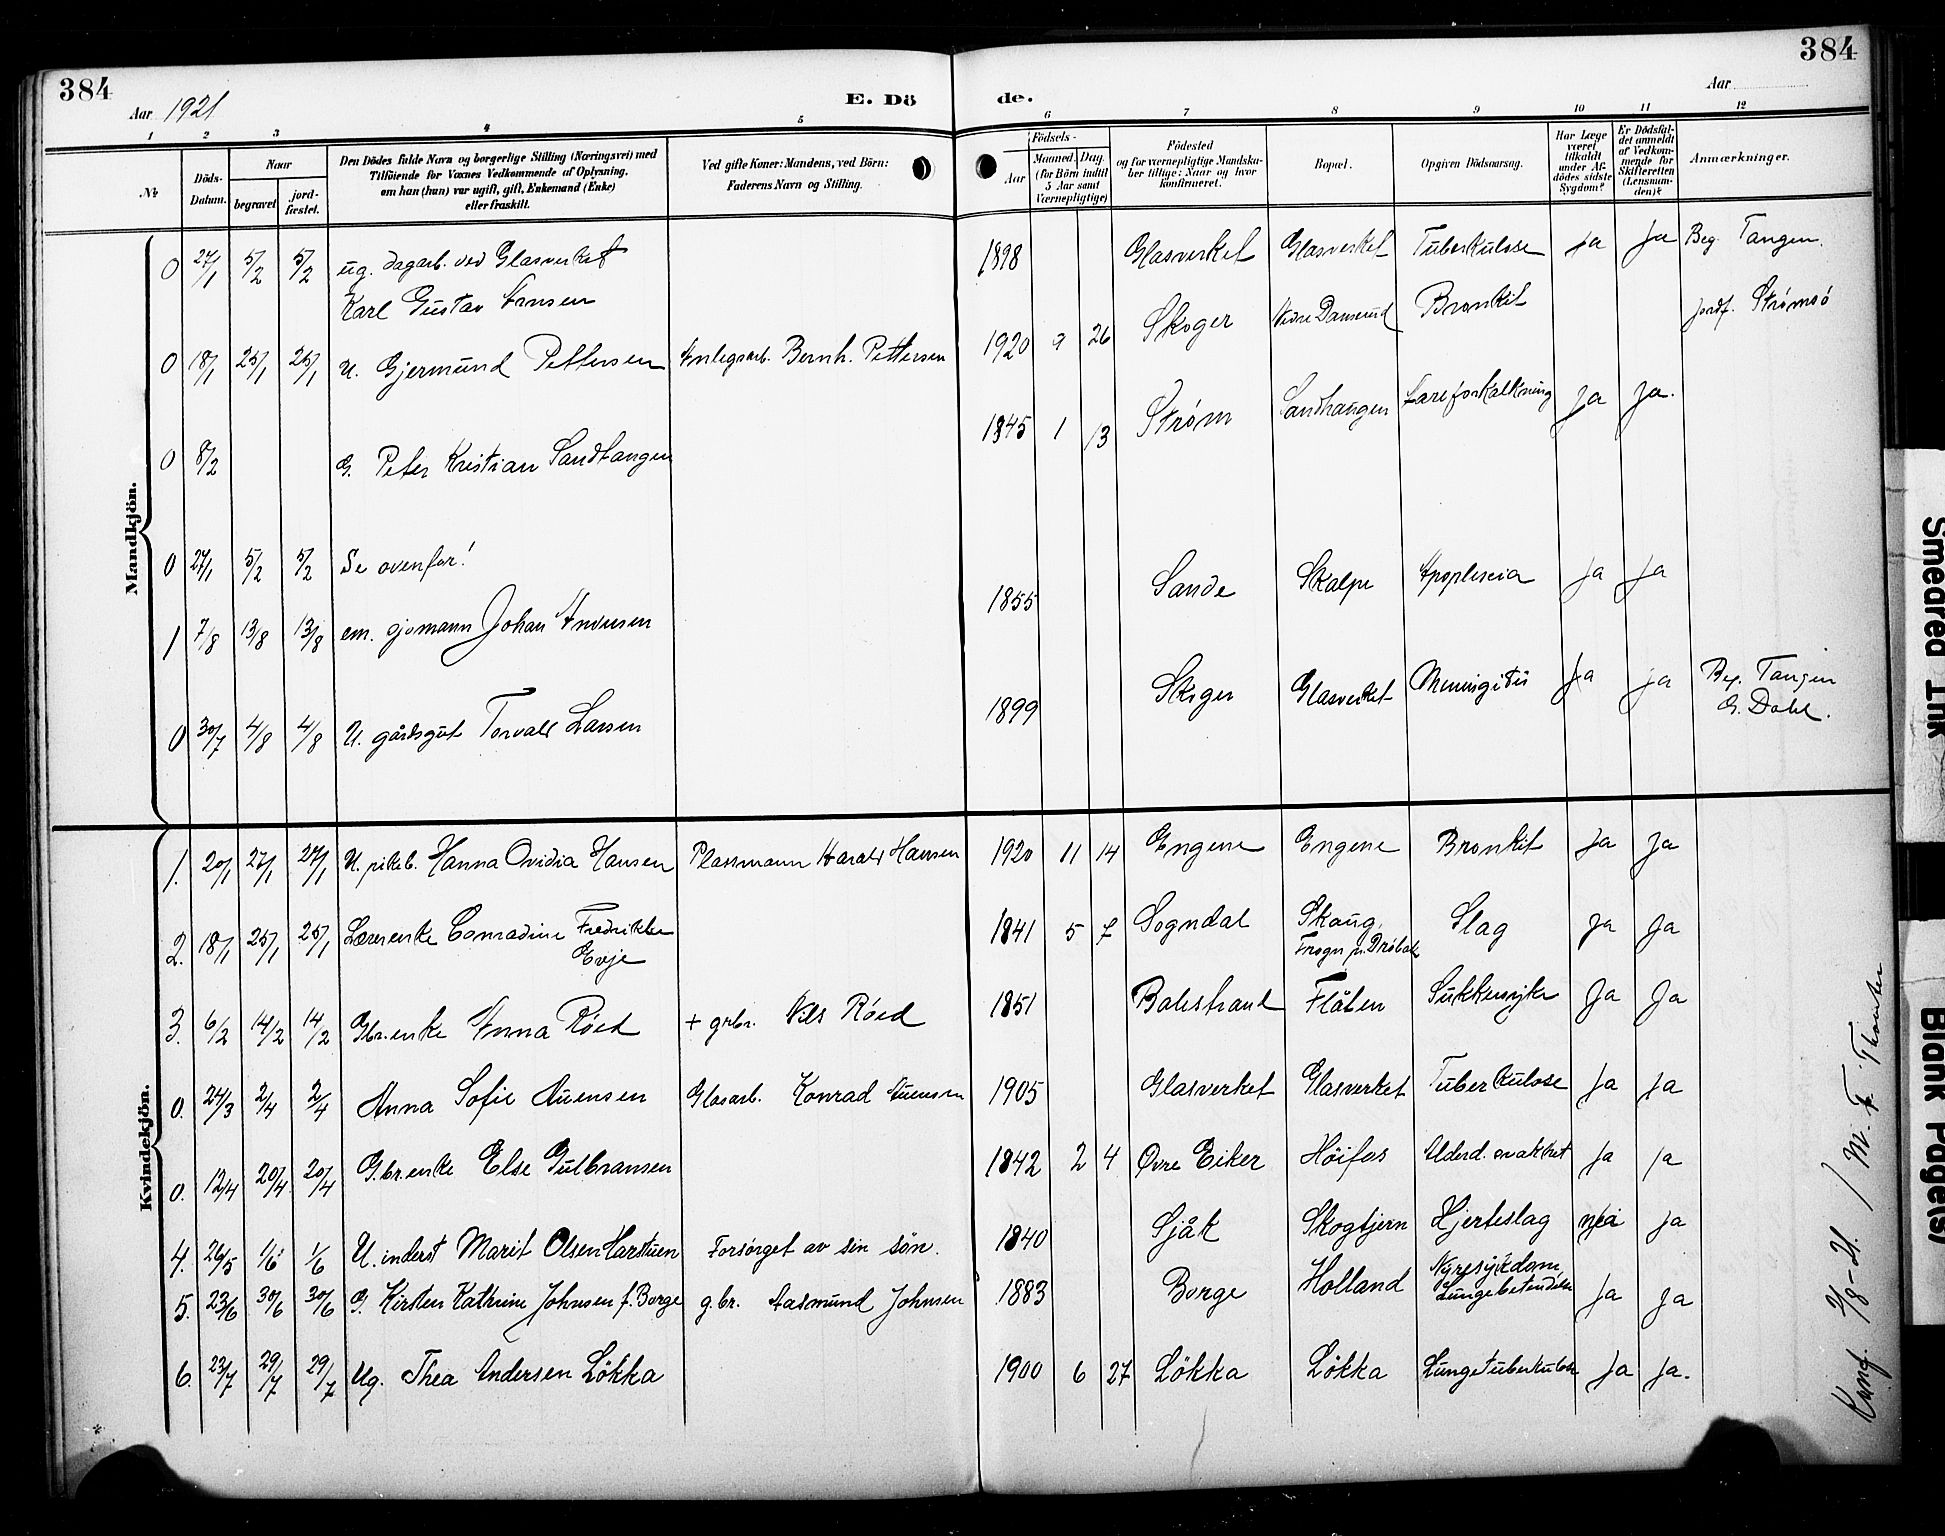 384
384
Aar 1921
E. Dö
de.
Aar
1 2 3 4 5 6 7 8 9 10 11 12
Nr
Döds-Datum.
Naar
begravet
jord-fæstet.
Den Dödes fulde Navn og borgerlige Stilling (Næringsvei) med
Tilföiende for Voxnes Vedkommende af Oplysning,
om han (hun) var ugift, gift, Enkemand (Enke)
eller fraskilt.
Ved gifte Koner: Mandens, ved Börn:
Faderens Navn og Stilling.
Födsels-
Aar
Maaned. Dag.
(for Börn indtil
5 Aar samt
Værnepligtige)
Födested
og for værnepligtige Mandska-
ber tillige: Naar og hvor
konfirmeret.
Bopæl.
Opgiven Dödsaarsag.
Har Læge
været
tilkaldt
under Af-
dödes sidste
Sygdom?
Er Dödsfal-
det anmeldt
af Vedkom-
mende for
Skifteretten
(Lensman-
den)?
Anmærkninger.
Mandkjön.
0 27/1 5/2 5/2 ug. dagarb. ved Glasverket 1898 Glasverket Glasverket Tuberkulose ja ja Beg. Tangen.
Karl Gustav Hansen
0 18/1 25/1 25/1 U. Gjermund Pettersen Anlegsarb. Bernh. Pettersen 1920 9 26 Skoger Nedre Damsrud Bronkit jordf. Strømsö
0 8/2 G. Peter Kristian Sandtangen 1845 1 13 Strøm Sandtangen Åreforkalkning ja ja.
0 27/1 5/2 5/2 Se ovenfor!
1 7/8 13/8 13/8 em. sjømann Johan Andersen 1855 Sande Skalpe Apoplexia ja ja
0 30/7 4/8 4/8 U. gårdsgut Torvald Larsen 1899 Skoger Glasverket Meningitis ja ja Beg. Tangen
G. Dahl.
Kvindekjön.
1. 20/1 27/1 27/1 U. pikeb. Hanna Ovidia Hansen Plassmann Harald Hansen 1920 11 14 Engene Engene Bronkit ja ja
2. 18/1 25/1 25/1 Lærerenke Conradine Fredrikke Evje 1841 5 7 Sogndal Skaug, Frogn p. Drøbak Slag ja ja
3. 6/2 14/2 14/2 Gbr.enke Anna Röed + grbr. Nils Röed 1851 Balestrand Flåten Sukkersyke Ja Ja
0. 24/3 2/4 2/4 Anna Sofie Auensen Glasarb. Konrad Auensen 1905 Glasverket Glasverket Tuberkulose ja ja
0. 12/4 20/4 20/4 Gbr.enke Else Gulbransen 1842 2 4 Øvre Eiker Höifos Alderd. svakhet ja ja
4. 26/5 1/6 1/6 U. inderst Marit Olsen Harstuen Forsörget av sin sön. 1840 Sjåk Skogtjern Hjerteslag nei ja
5. 23/6 30/6 30/6 G. Kirsten Kathrine Johnsen f. Borge g.br. Aasmund Johnsen 1883 Borge Holland Nyresykdom, Lungebetendelse ja ja
6. 23/7 29/7 29/7 Ug. Thea Andersen Lökka 1900 6 27 Lökka Lökka Lungetuberkulose ja ja.
Smeared Ink
Blank Page(s)